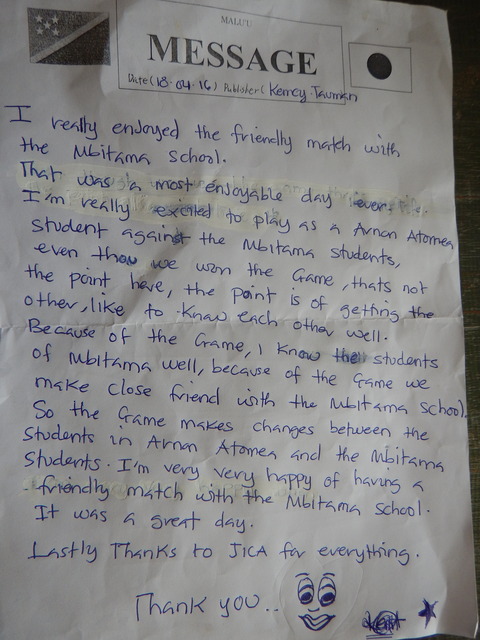 MALU'U
MESSAGE
Date(18.04.16) Publisher(Kemcy.Tauman
I really enjoyed the friendly match with
the Mbitama school.
That was a most enjoyable day ever.
I'm really excited to play as a Arnon Atomea
student against the Mbitama students,
even thou we won the Game, thats not
the point here, the point is of getting the
other, like to know each other well.
Because of the Game, i know the students
of Mbitama well, because of the Game we
make close friend with the Mbitama school.
So the Game makes changes between the
Students in Arnon Atomea and the Mbitama
Students. I'm very very happy of having a
friendly match with the Mbitama school.
It was a great day.
Lastly Thanks to JICA for everything.
Thank you..